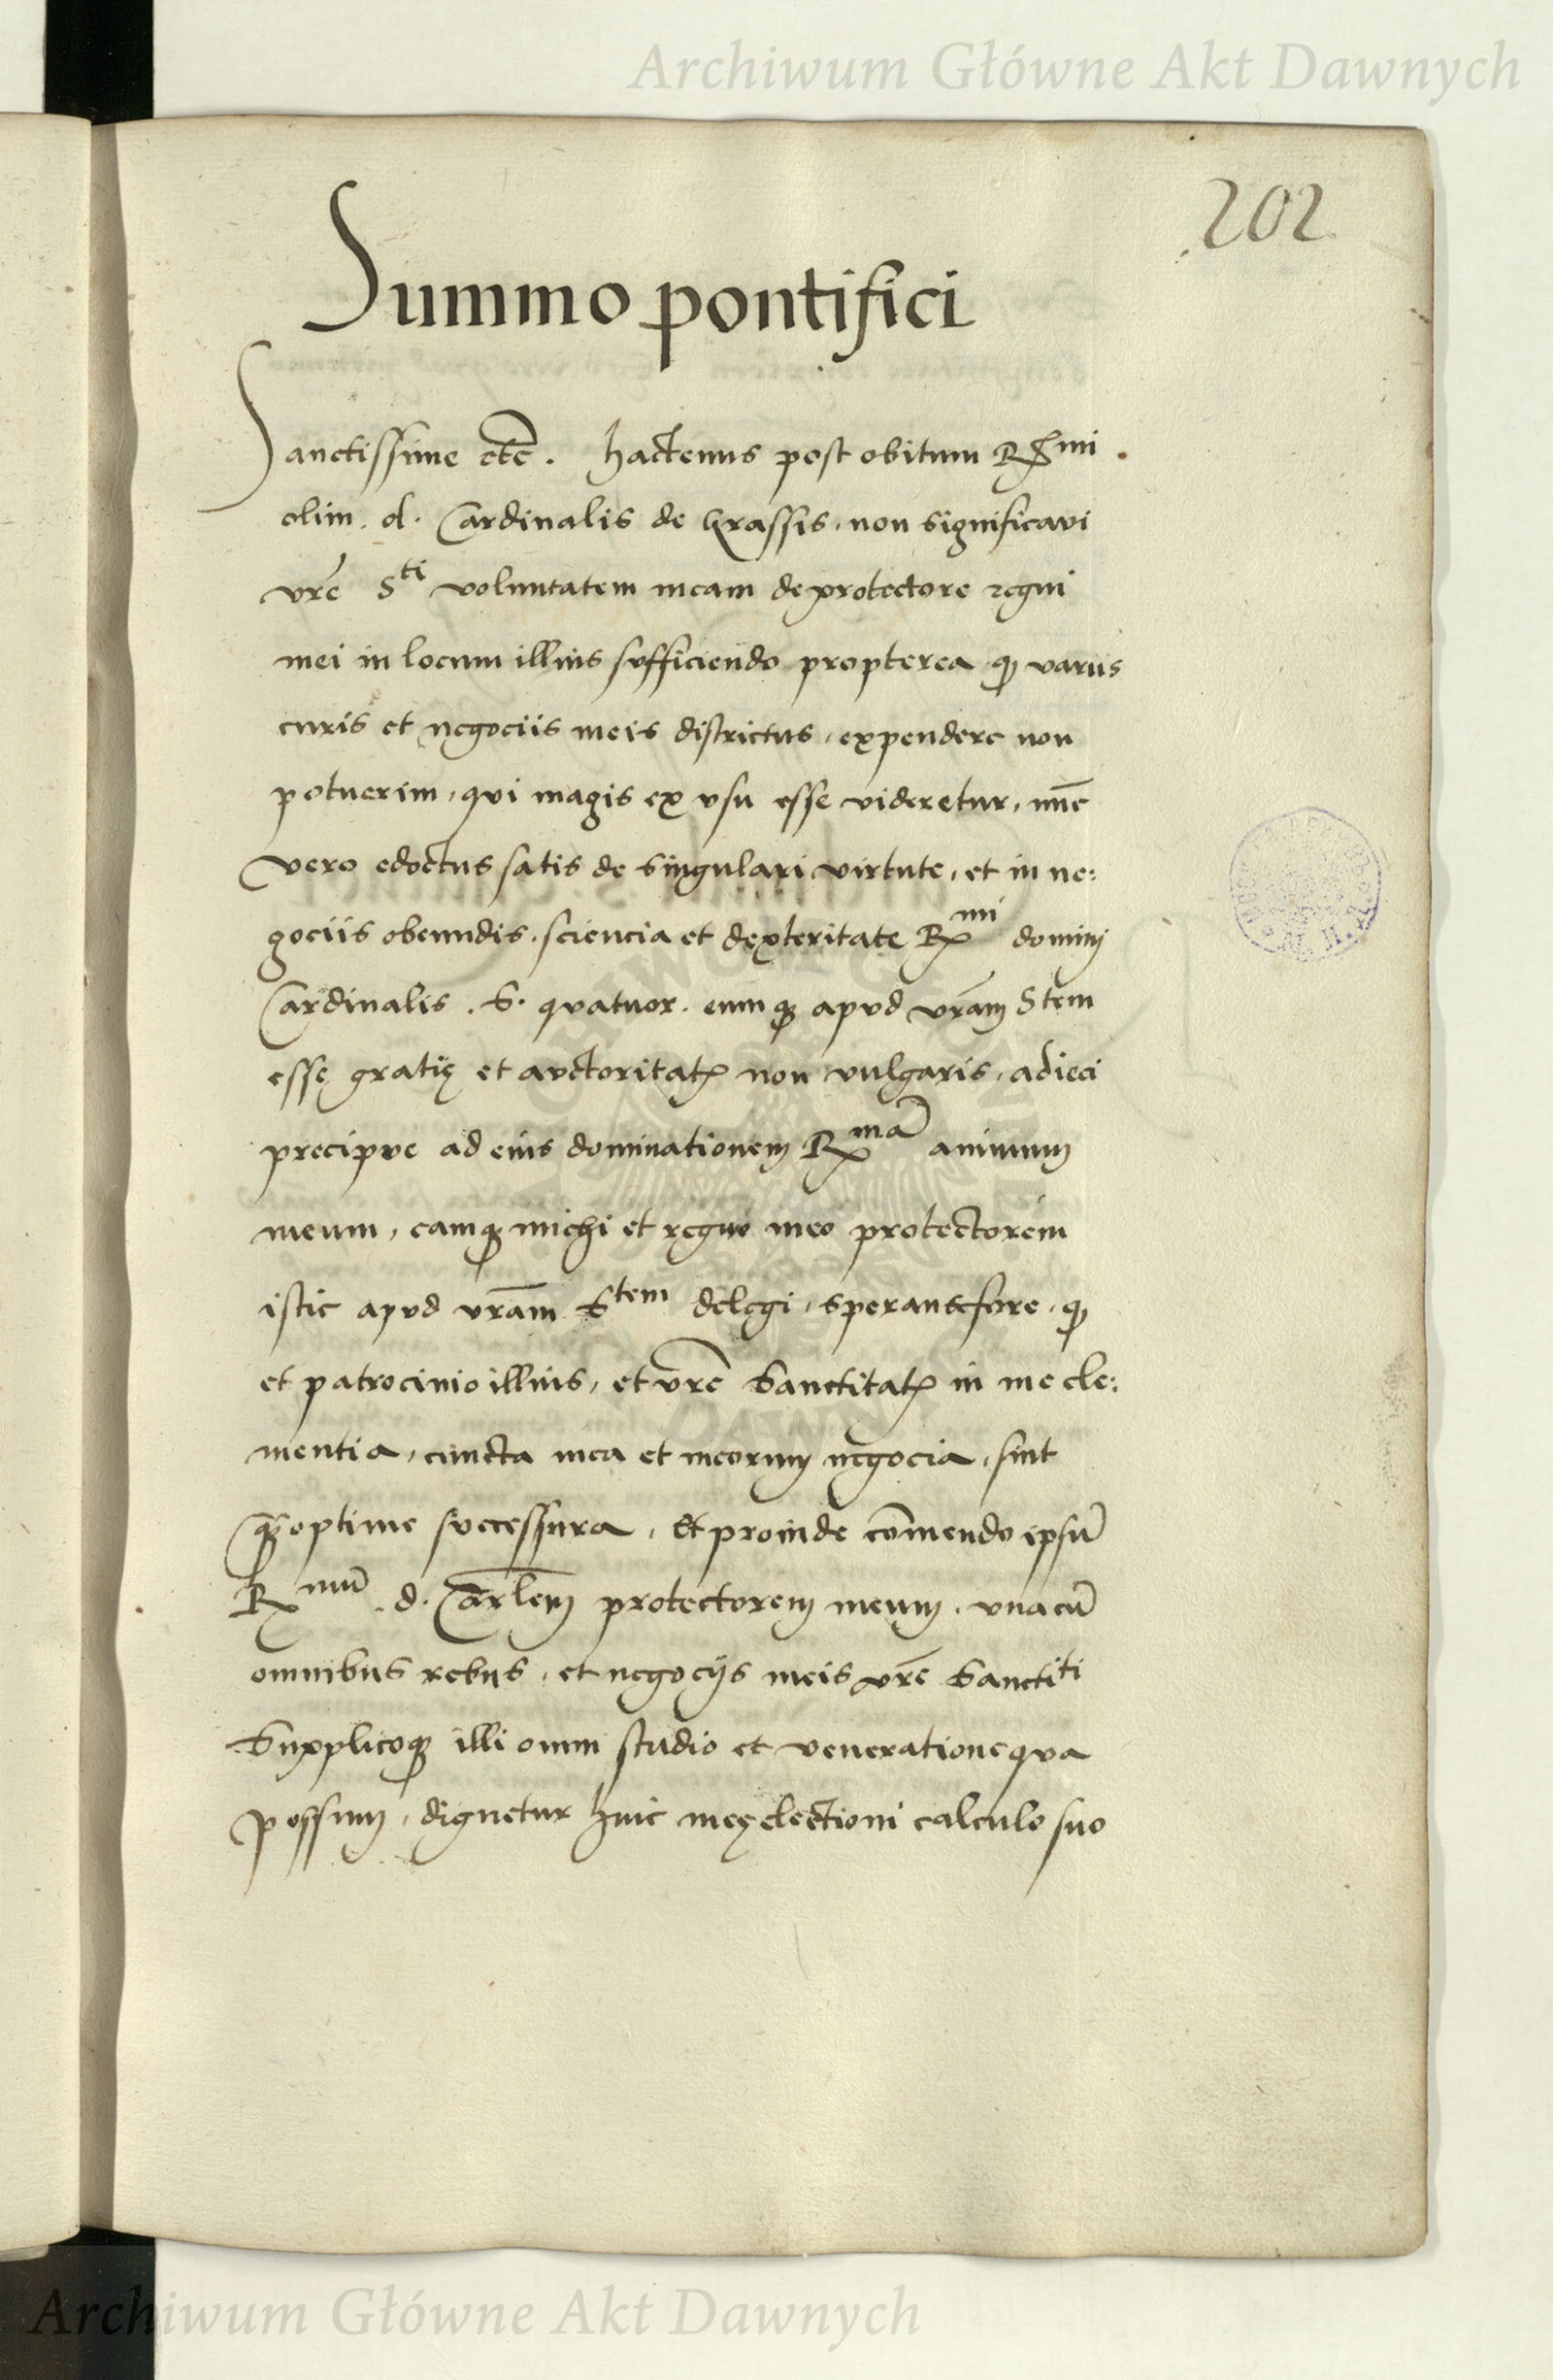 Archiwum Główne Akt Dawnych
202
Summo pontifici
Sanctissime etc̄. hactenus post obitum Rmi.
olim. d. Cardinalis de Grassis, non significavi
vr̄e Sti voluntatem meam de protectore regni
mei in locum illius sufficiendo propterea ꝙ variis
curis et negociis meis districtus, expendere non
potuerim, qui magis ex usu esse videretur, nūc
vero edoctus satis de singulari virtute, et in ne:
gociis obeundis. sciencia et dexteritate Rmi domini
Cardinalis. S. quatuor. eumqꝫ apud vr̄am Stem
esse gratię et auctoritatꝭ non vulgaris, adieci
precipue ad eius dominationem Rmā animum
meum, eamqꝫ michi et regno meo protectorem
istic apud vr̄am Stem delegi, sperans fore, ꝙ
et patrocinio illius, et vr̄e Sanctitatꝭ in me cle:
mentia, cuncta mea et meorum negocia, sint
ꝙ̄ optime successura, Et proinde cōmendo ipsū
Rmū. d. Car̄lem protectorem meum, una cū
omnibus rebus, et negociis meis vr̄e Sanctiti
Supplicoqꝫ illi omni studio et veneratione qua
possum, dignetur huic meę electioni calculo suo
Archiwum Główne Akt Dawnych